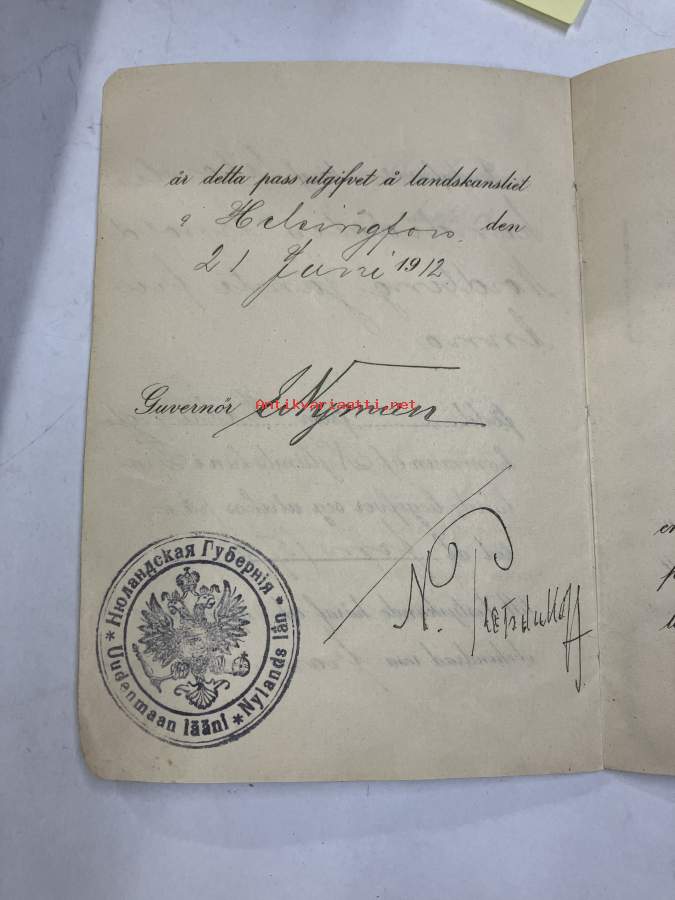 är detta pass utgifvet å landskansliet
i Helsingfors den
21 Juni 1912
Guvernör Nyman
Antikvariaatti.net
N.
* Нюландская Губернія * Nylands län * Uudenmaan lääni